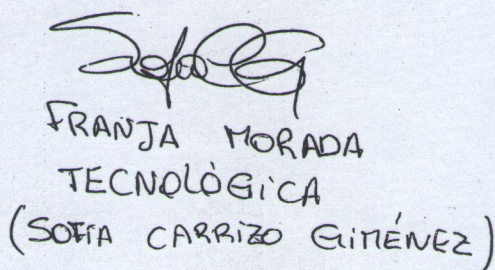 Sofia CG
FRANJA MORADA
TECNOLÓGICA
(SOFIA CARRIZO GIMÉNEZ)